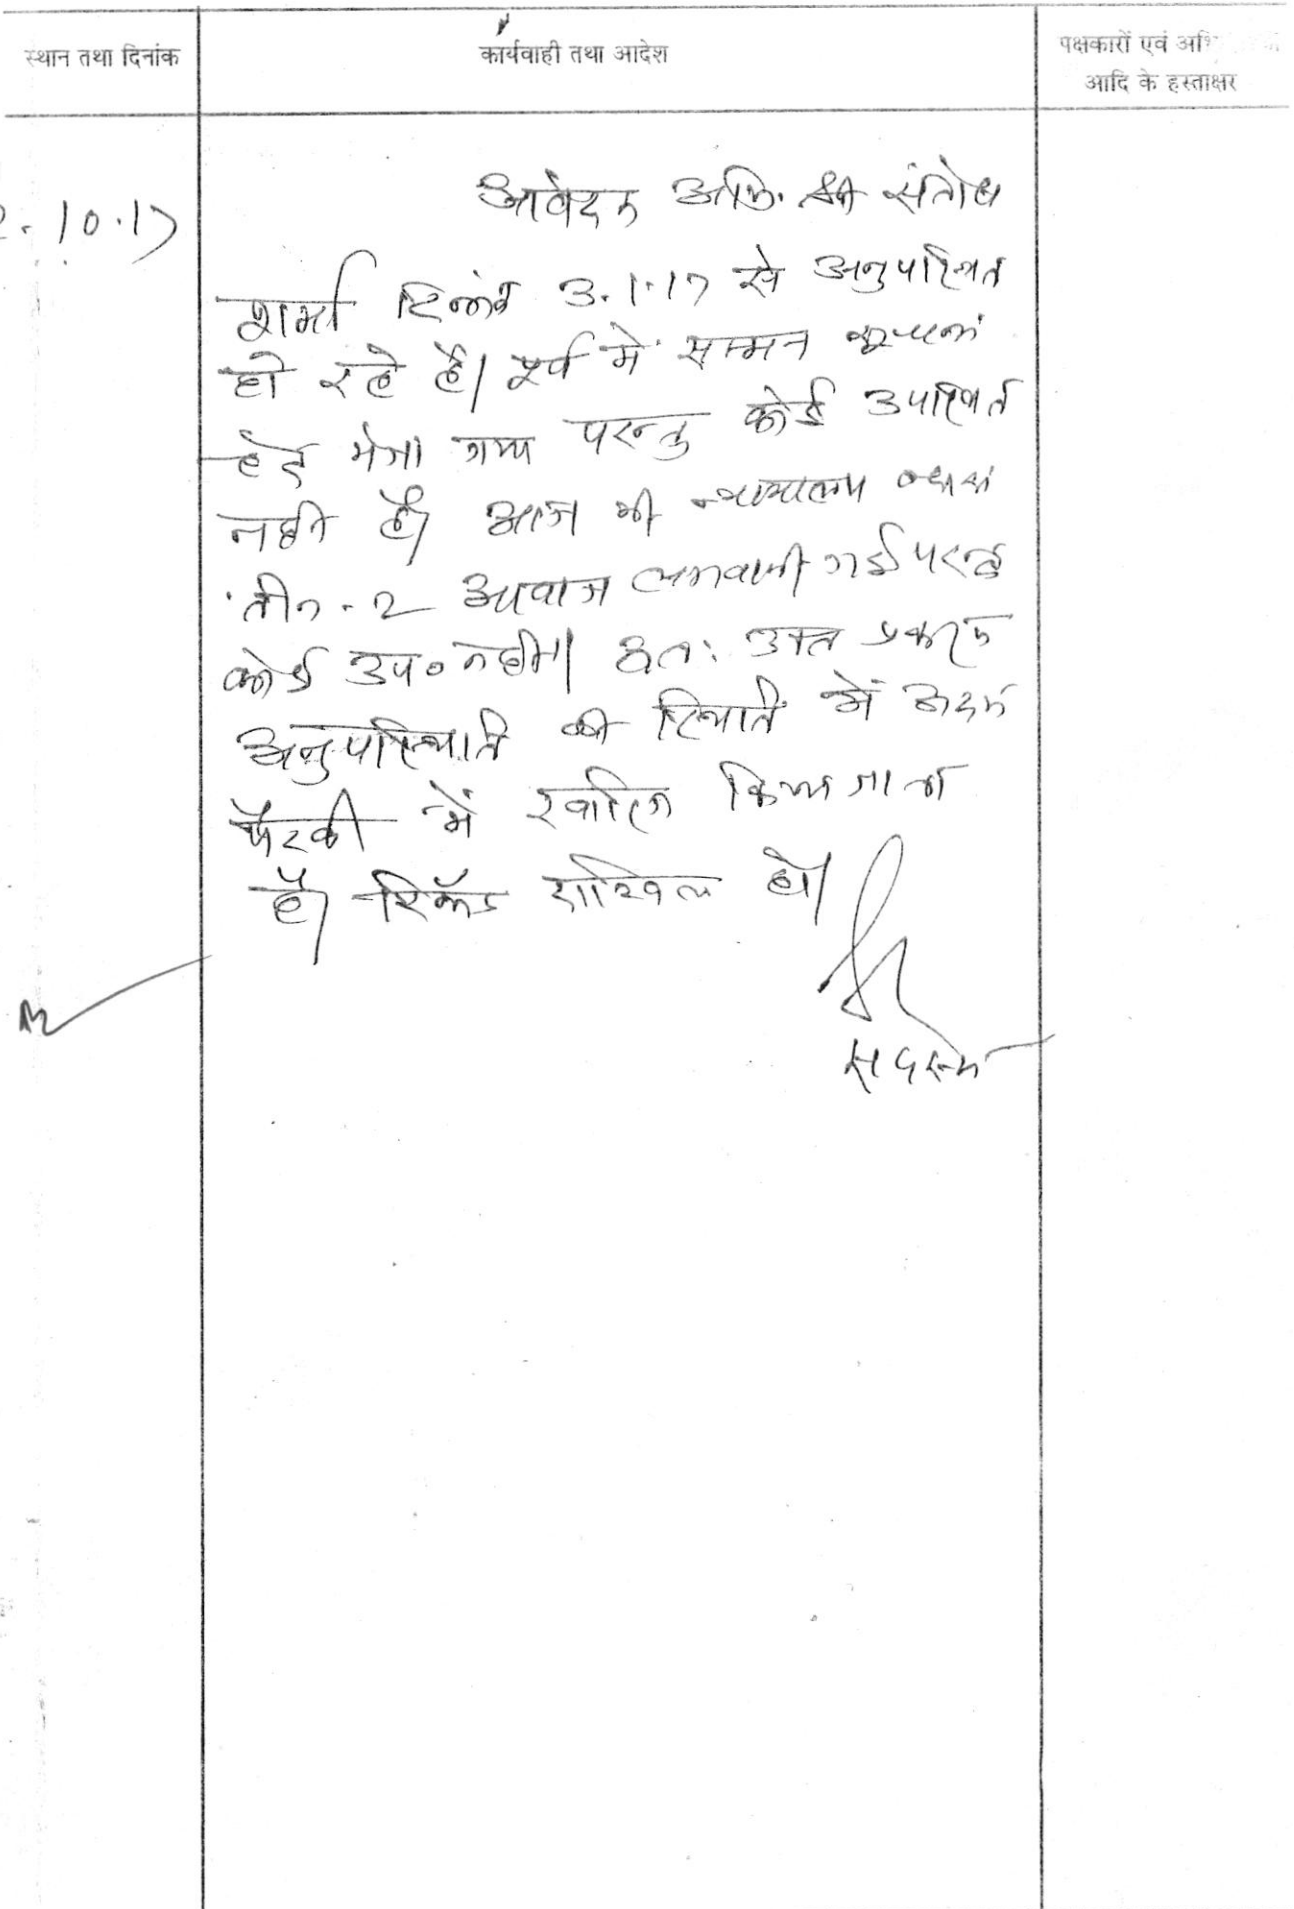 स्थान तथा दिनांक
कार्यवाही तथा आदेश
पक्षकारों एवं
आदि के हस्ताक्षर
.10.17
आवेदक अभि. श्री संतोष
शर्मा दिनांक 3.1.17 से अनुपस्थित
हो रहे है। पूर्व में सम्मन सूचना
हेतु भेजा गया परन्तु कोई उपस्थित
नही है। आज भी न्यायालय
तीन-2 आवाज लगवायी गई परन्तु
कोई उप० नही। अतः उक्त प्रकरण
अनुपस्थिति की स्थिति में अदम
पैरवी में खारिज किया जाता
है। रिकॉर्ड दाखिल हो।
सदस्य